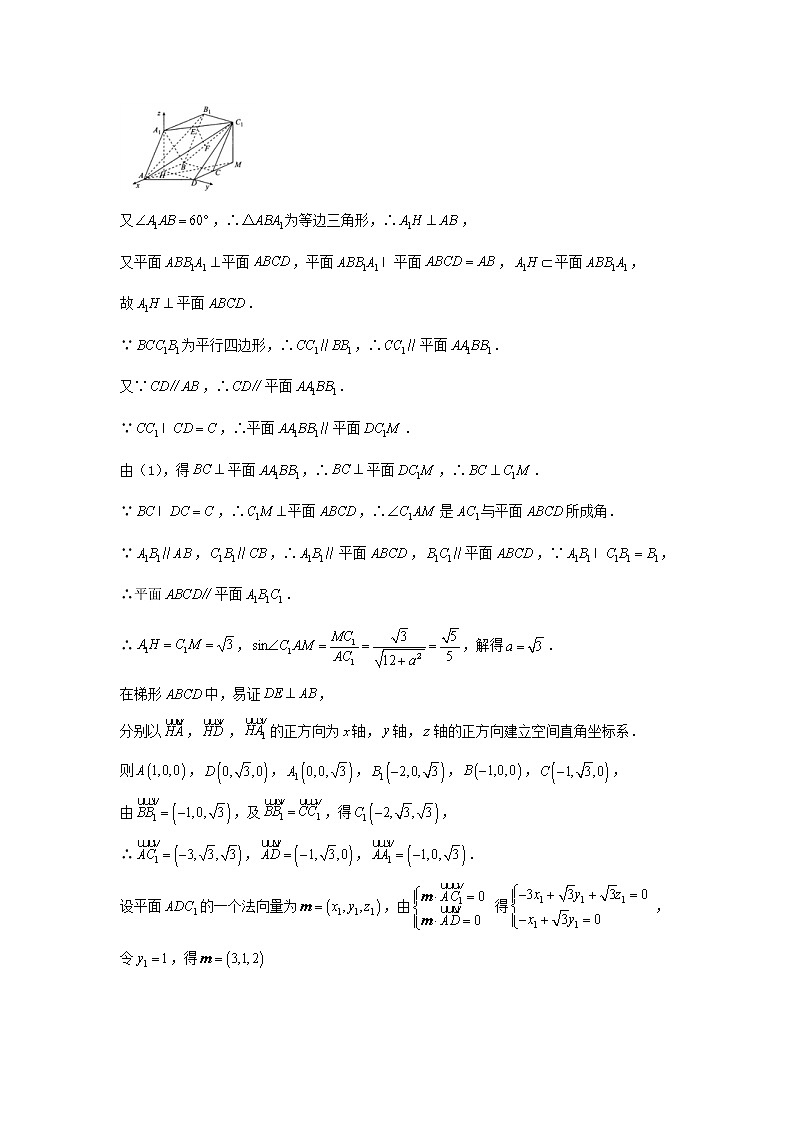 z A₁ B₁ C₁ E F B M A H D C x y
又∠A₁AB = 60°,∴△ABA₁为等边三角形,∴A₁H ⊥ AB,
又平面ABB₁A₁⊥平面ABCD,平面ABB₁A₁ I 平面ABCD = AB,A₁H⊂平面ABB₁A₁,
故A₁H ⊥平面ABCD.
∵BCC₁B₁为平行四边形,∴CC₁∥BB₁,∴CC₁∥平面AA₁BB₁.
又∵CD∥AB,∴CD∥平面AA₁BB₁.
∵CC₁ I CD = C,∴平面AA₁BB₁∥平面DC₁M.
由(1),得BC⊥平面AA₁BB₁,∴BC⊥平面DC₁M,∴BC⊥C₁M.
∵BC I DC = C,∴C₁M⊥平面ABCD,∴∠C₁AM是AC₁与平面ABCD所成角.
∵A₁B₁∥AB,C₁B₁∥CB,∴A₁B₁∥平面ABCD,B₁C₁∥平面ABCD,∵A₁B₁ I C₁B₁ = B₁,
∴平面ABCD∥平面A₁B₁C₁.
∴A₁H = C₁M = √3,sin∠C₁AM = MC₁/AC₁ = √3/√(12+a²) = √5/5,解得a = √3.
在梯形ABCD中,易证DE⊥AB,
分别以HA,HD,HA₁的正方向为x轴,y轴,z轴的正方向建立空间直角坐标系.
则A(1,0,0),D(0,√3,0),A₁(0,0,√3),B₁(−2,0,√3),B(−1,0,0),C(−1,√3,0),
由BB₁ = (−1,0,√3),及BB₁ = CC₁,得C₁(−2,√3,√3),
∴AC₁ = (−3,√3,√3),AD = (−1,√3,0),AA₁ = (−1,0,√3).
设平面ADC₁的一个法向量为m = (x₁,y₁,z₁),由{m·AC₁ = 0 m·AD = 0 得{−3x₁ + √3y₁ + √3z₁ = 0 −x₁ + √3y₁ = 0,
令y₁ = 1,得m = (√3,1,2)